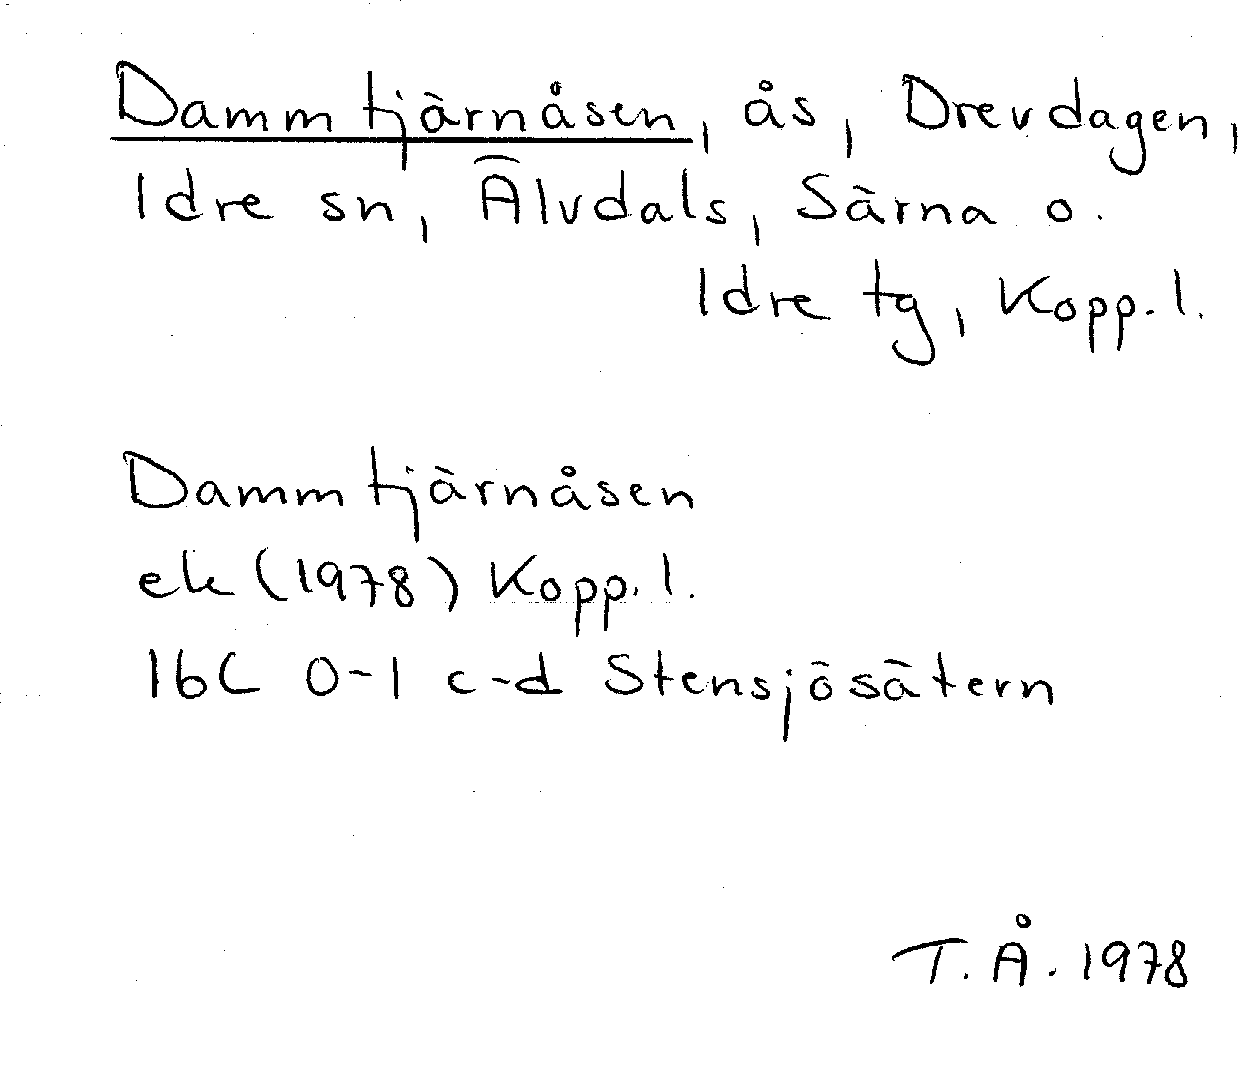 Dammtjärnåsen, ås, Drevdagen,
Idre sn, Älvdals, Särna o.
Idre tg, Kopp. l.
Dammtjärnåsen
ek (1978) Kopp. l.
16C 0-1 c-d Stensjösätern
T. Å. 1978